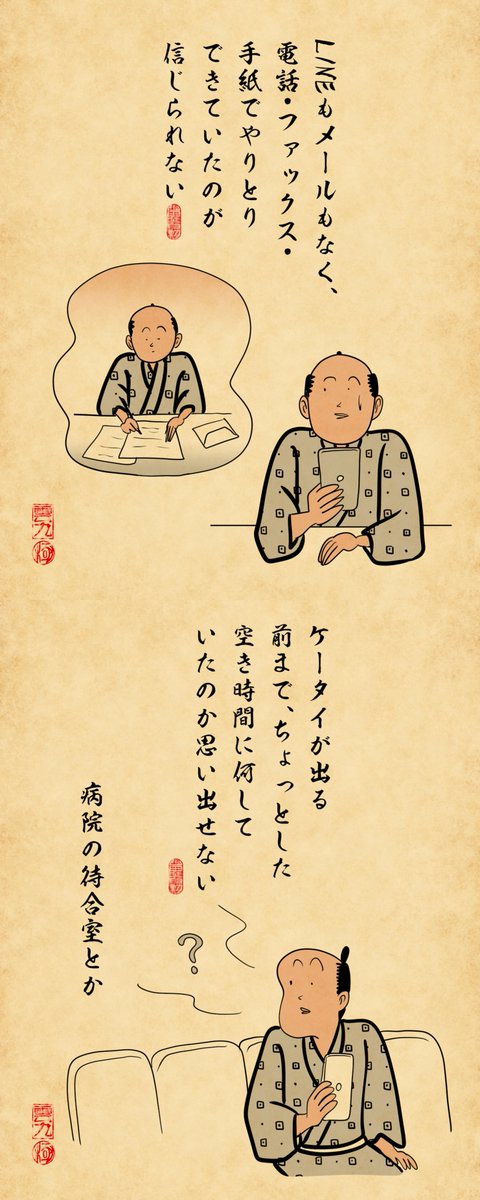 LINEもメールもなく、
電話・ファックス・
手紙でやりとり
できていたのが
信じられない
ケータイが出る
前まで、ちょっとした
空き時間に何して
いたのか思い出せない
病院の待合室とか
?